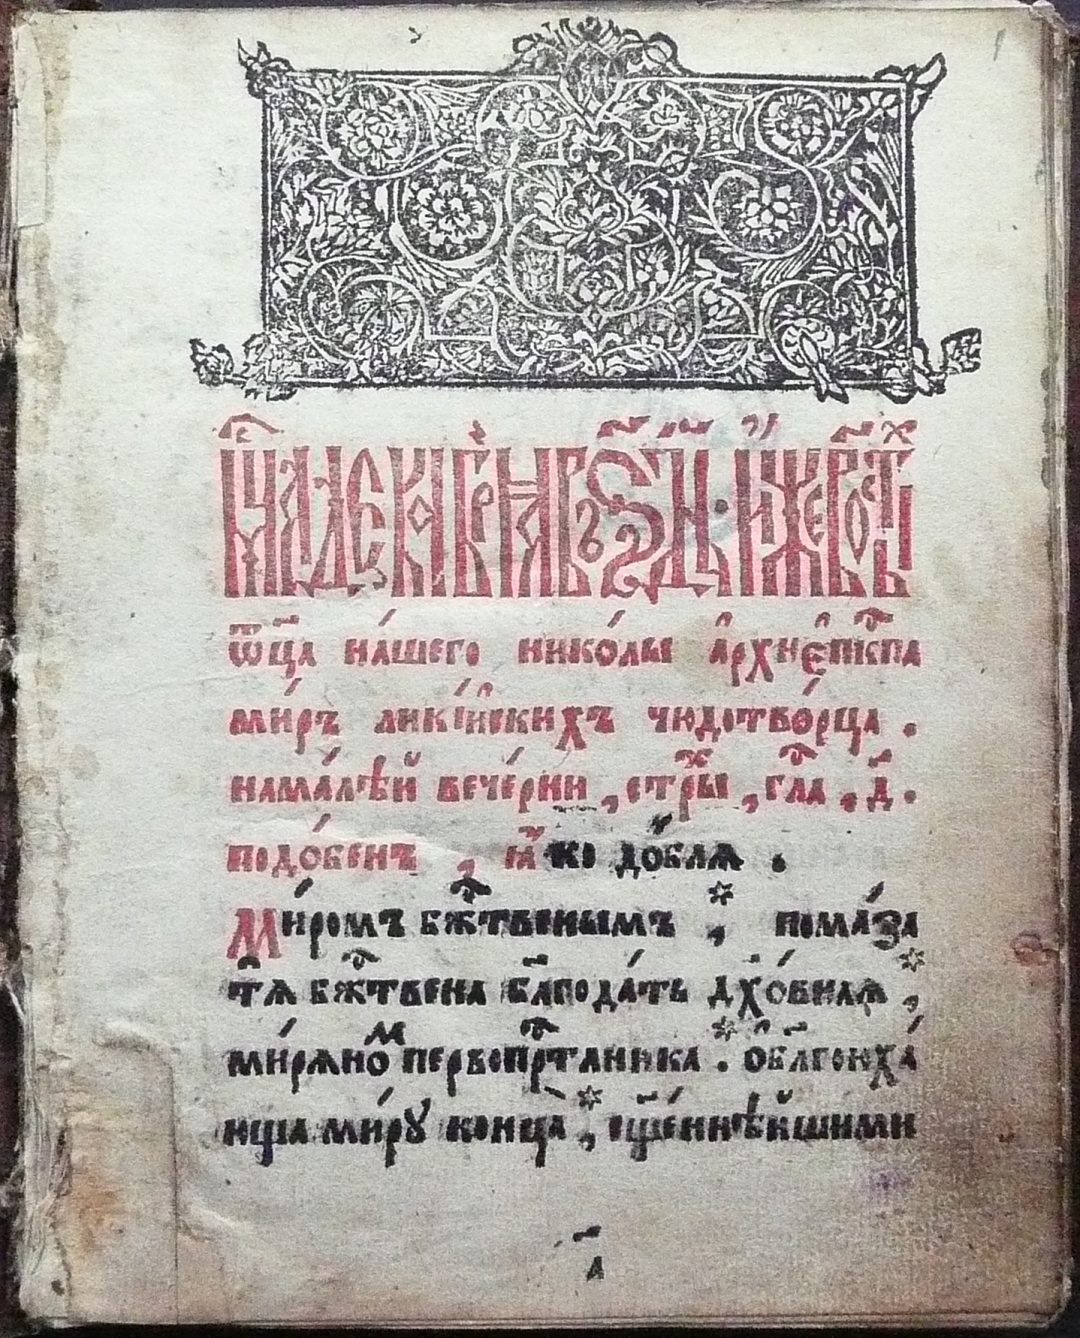 мⷭ҇ца декабрѧ въ ѕ҃ д҃нь. и҆́же во ст҃ы́хъ
ѿц҃а на́шего нико́лы а҆рхиепⷭ҇кпа
ми́ръ ликі́йскихъ чюдотво́рца .
нама́лѣй вече́рни , стⷯры , гла , д҃ .
подо́бенъ , ꙗ҆́ко до́блѧ .
Ми́ромъ бжⷭ҇твенымъ , пома́за
тѧ бжⷭ҇твена бл҃года́ть дх҃о́внаѧ ,
ми́рѧноⷨ первопрⷭ҇тлника . ѡ҆бл҃гоюха́
ниѧ ми́рꙋ конца , сщ҃е́ннѣйшими
а҃